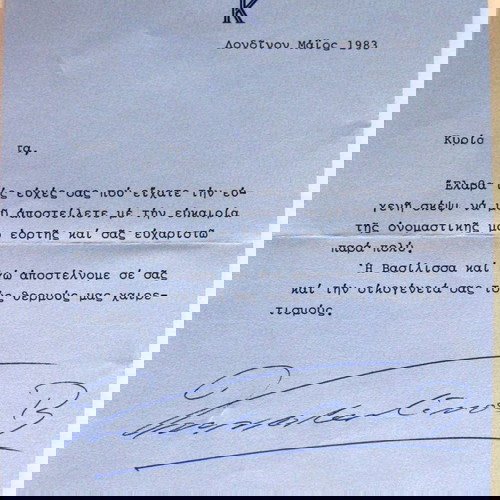 K
Λονδίνον Μάϊος 1983
Κύριο
τα,
Ἔλαβα
ς εὐχές σας πού εἴχατε τήν εὐ-
γενῆ σκέψι νά μοῦ ἀποστείλετε μέ τήν εὐκαιρία
τῆς ὀνομαστικῆς μου ἑορτῆς καί σᾶς εὐχαριστῶ
παρά πολύ.
Ἡ Βασίλισσα καί
γώ ἀποστέλνομε σέ σᾶς
καί τήν οἰκογένειά σας τούς θερμούς μας χαιρε-
τισμούς.